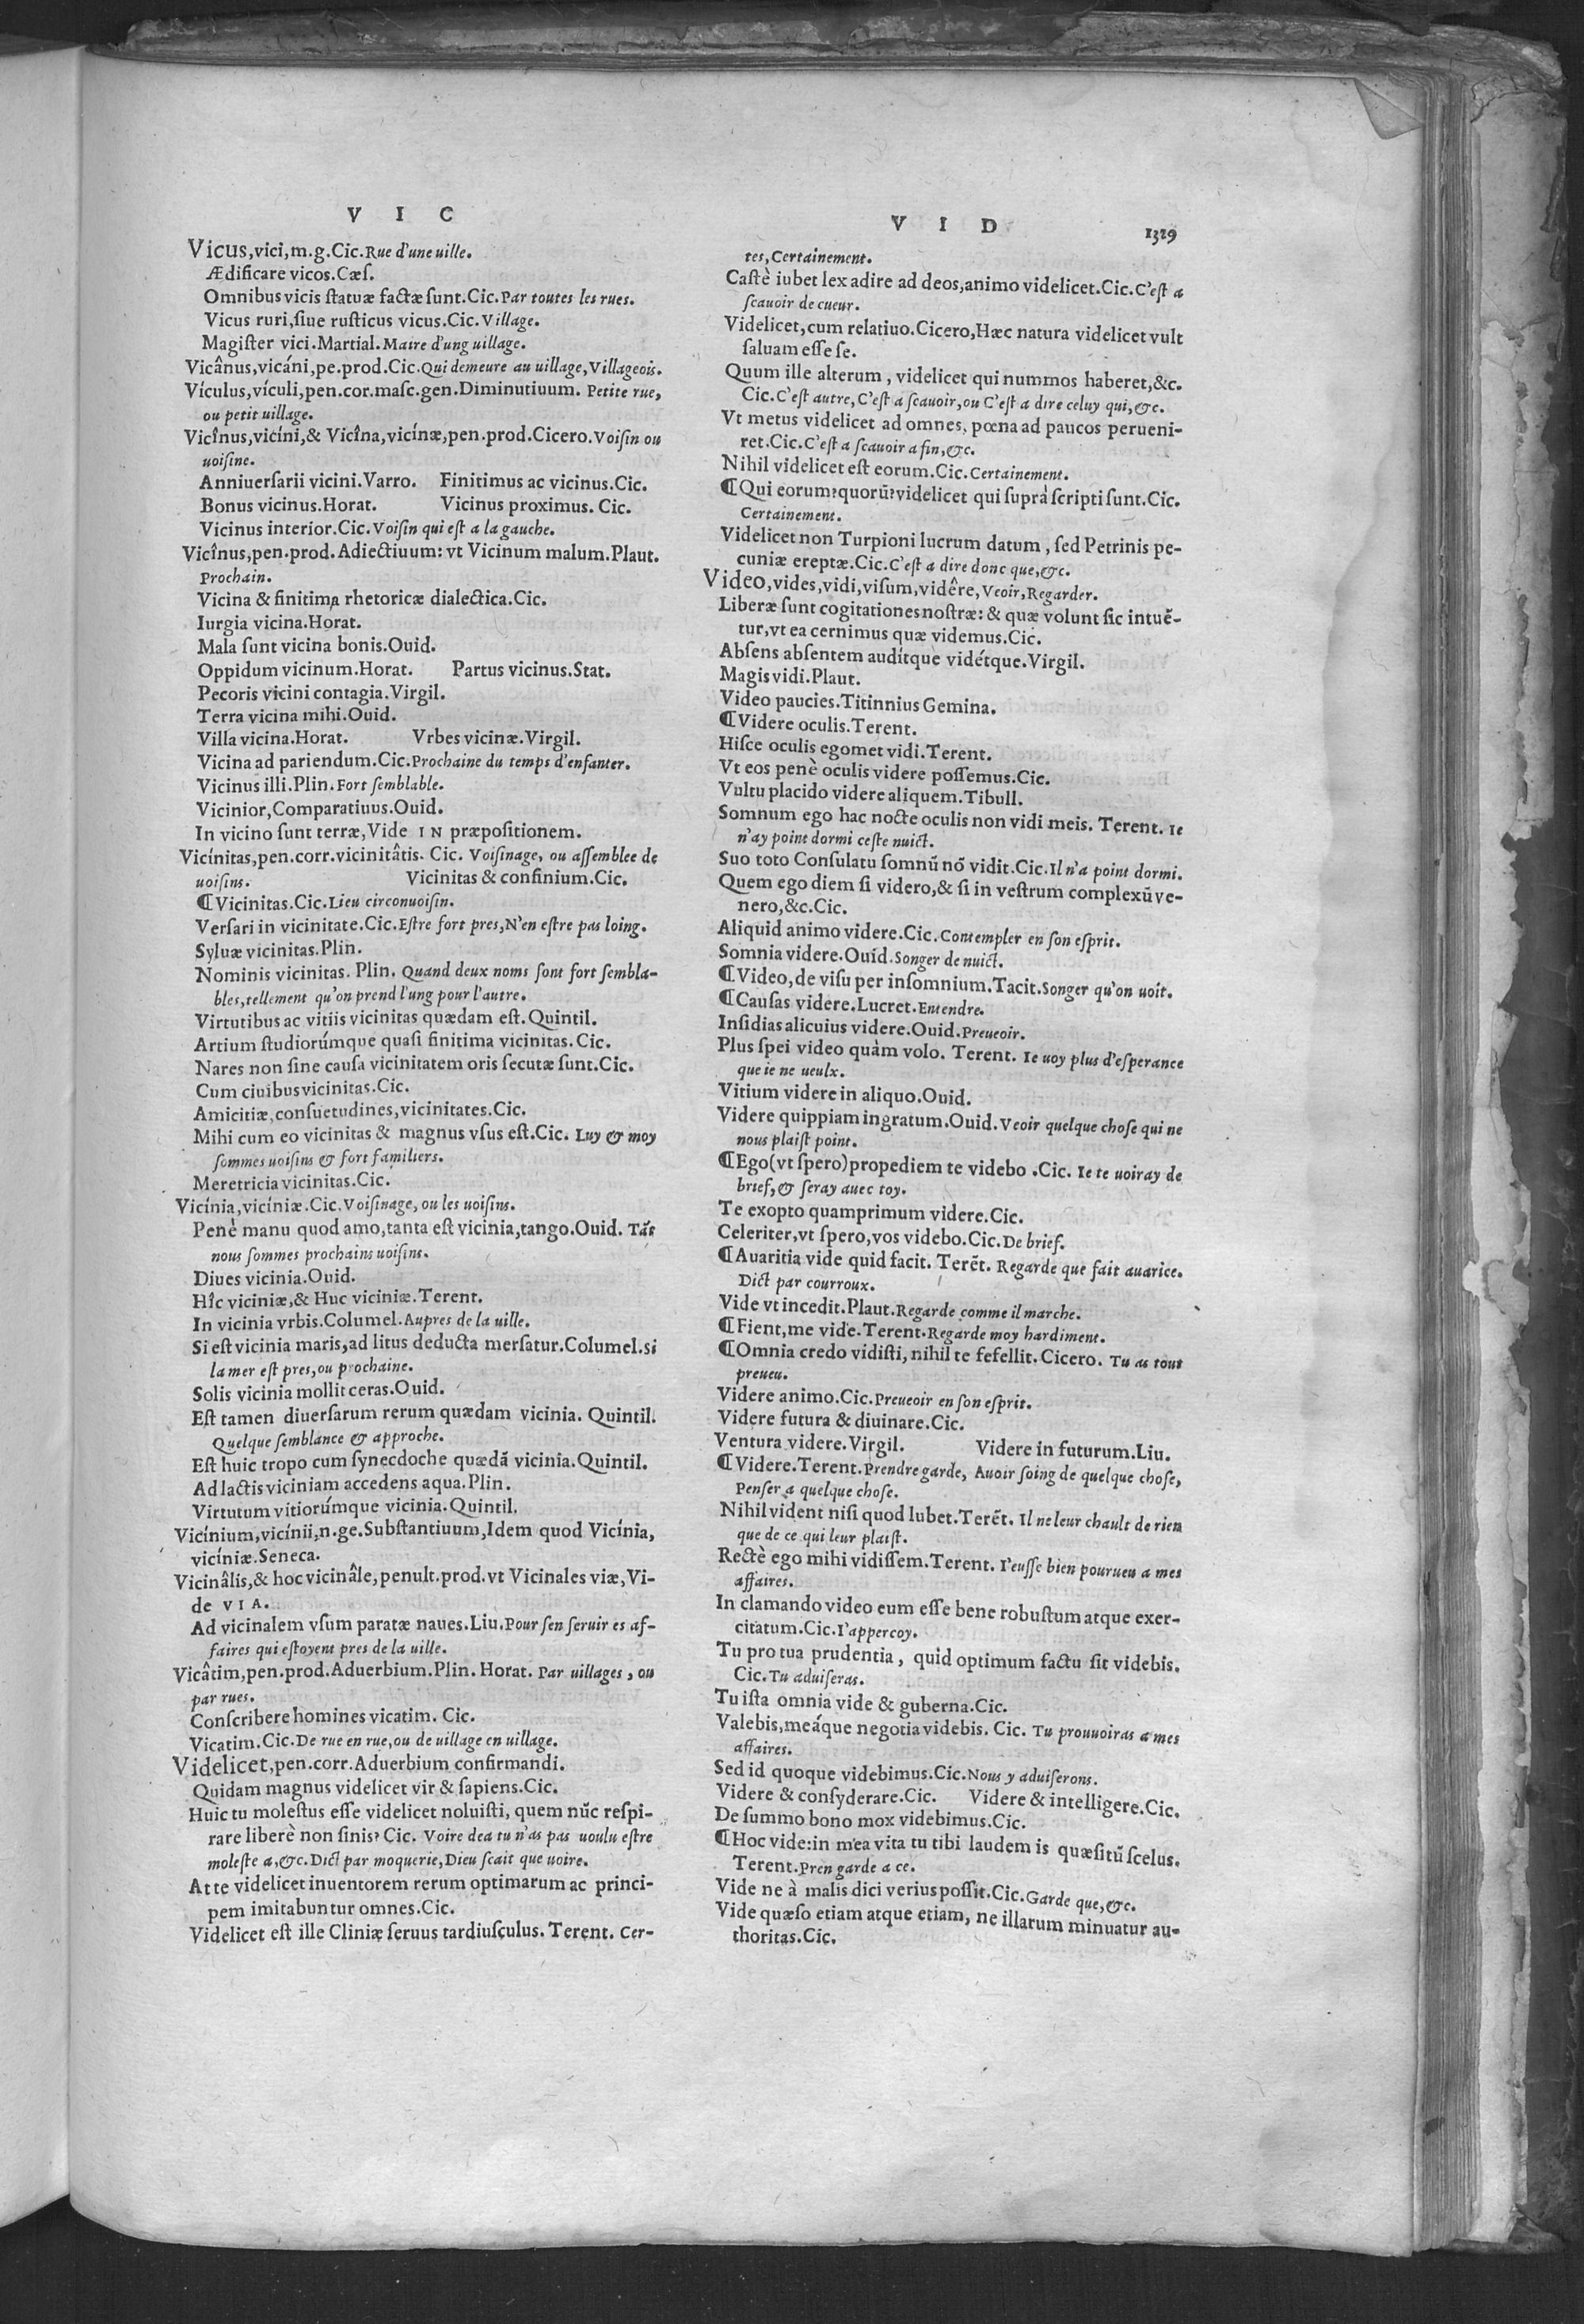 V I C
Vicus,vici,m.g.Cic.Rue d'une uille.
Ædificare vicos.Cæſ.
Omnibus vicis ſtatuæ factæ ſunt.Cic.Par toutes les rues.
Vicus ruri,ſiue ruſticus vicus.Cic.Village.
Magiſter vici.Martial.Maire d'ung uillage.
Vicânus,vicáni,pe.prod.Cic.Qui demeure au uillage,Villageois.
Vículus,vículi,pen.cor.maſc.gen.Diminutiuum. Petite rue,
ou petit uillage.
Vicînus,vicíni,& Vicîna,vicínæ,pen.prod.Cicero.Voiſin ou
uoiſine.
Anniuerſarii vicini.Varro. Finitimus ac vicinus.Cic.
Bonus vicinus.Horat. Vicinus proximus. Cic.
Vicinus interior.Cic.Voiſin qui eſt a la gauche.
Vicînus,pen.prod.Adiectiuum: vt Vicinum malum.Plaut.
Prochain.
Vicina & finitima rhetoricæ dialectica.Cic.
Iurgia vicina.Horat.
Mala ſunt vicina bonis.Ouid.
Oppidum vicinum.Horat. Partus vicinus.Stat.
Pecoris vicini contagia.Virgil.
Terra vicina mihi.Ouid.
Villa vicina.Horat. Vrbes vicinæ.Virgil.
Vicina ad pariendum.Cic.Prochaine du temps d'enfanter.
Vicinus illi.Plin.Fort ſemblable.
Vicinior,Comparatiuus.Ouid.
In vicino ſunt terræ,Vide IN præpoſitionem.
Vicínitas,pen.corr.vicinitâtis. Cic. Voiſinage, ou aſſemblee de
uoiſins. Vicinitas & confinium.Cic.
¶Vicinitas.Cic.Lieu circonuoiſin.
Verſari in vicinitate.Cic.Eſtre fort pres,N'en eſtre pas loing.
Syluæ vicinitas.Plin.
Nominis vicinitas. Plin. Quand deux noms ſont fort ſembla-
bles,tellement qu'on prend l'ung pour l'autre.
Virtutibus ac vitiis vicinitas quædam eſt.Quintil.
Artium ſtudiorúmque quaſi finitima vicinitas.Cic.
Nares non ſine cauſa vicinitatem oris ſecutæ ſunt.Cic.
Cum ciuibus vicinitas.Cic.
Amicitiæ,conſuetudines,vicinitates.Cic.
Mihi cum eo vicinitas & magnus vſus eſt.Cic. Luy & moy
ſommes uoiſins & fort familiers.
Meretricia vicinitas.Cic.
Vicínia,viciniæ.Cic.Voiſinage,ou les uoiſins.
Penè manu quod amo,tanta eſt vicinia,tango.Ouid. Tãt
nous ſommes prochains uoiſins.
Diues vicinia.Ouid.
Hîc viciniæ,& Huc viciniæ.Terent.
In vicinia vrbis.Columel.Aupres de la uille.
Si eſt vicinia maris,ad litus deducta merſatur.Columel.Si
la mer eſt pres,ou prochaine.
Solis vicinia mollit ceras.Ouid.
Eſt tamen diuerſarum rerum quædam vicinia. Quintil.
Quelque ſemblance & approche.
Eſt huic tropo cum ſynecdoche quædã vicinia.Quintil.
Ad lactis viciniam accedens aqua.Plin.
Virtutum vitiorúmque vicinia.Quintil.
Vicínium,vicínii,n.ge.Subſtantiuum,Idem quod Vicínia,
viciniæ.Seneca.
Vicinâlis,& hoc vicinâle,penult.prod.vt Vicinales viæ,Vi-
de VIA.
Ad vicinalem vſum paratæ naues.Liu.Pour ſen ſeruir es af-
faires qui eſtoyent pres de la uille.
Vicâtim,pen.prod.Aduerbium.Plin.Horat. Par uillages, ou
par rues.
Conſcribere homines vicatim. Cic.
Vicatim.Cic.De rue en rue,ou de uillage en uillage.
Videlicet,pen.corr.Aduerbium confirmandi.
Quidam magnus videlicet vir & ſapiens.Cic.
Huic tu moleſtus eſſe videlicet noluiſti, quem nũc reſpi-
rare liberè non ſinis? Cic. Voire dea tu n'as pas uoulu eſtre
moleſte a,&c.Dict par moquerie,Dieu ſcait que uoire.
At te videlicet inuentorem rerum optimarum ac princi-
pem imitabuntur omnes.Cic.
Videlicet eſt ille Cliniæ ſeruus tardiuſculus. Terent. Cer-
V I D 1319
tes,Certainement.
Caſtè iubet lex adire ad deos,animo videlicet.Cic.C'eſt a
ſcauoir de cueur.
Videlicet,cum relatiuo.Cicero,Hæc natura videlicet vult
ſaluam eſſe ſe.
Quum ille alterum, videlicet qui nummos haberet,&c.
Cic.C'eſt autre,C'eſt a ſcauoir,ou C'eſt a dire celuy qui,&c.
Vt metus videlicet ad omnes, pœna ad paucos perueni-
ret.Cic.C'eſt a ſcauoir a fin,&c.
Nihil videlicet eſt eorum.Cic.Certainement.
¶Qui eorum?quorũ?videlicet qui ſuprà ſcripti ſunt.Cic.
Certainement.
Videlicet non Turpioni lucrum datum, ſed Petrinis pe-
cuniæ ereptæ.Cic.C'eſt a dire donc que,&c.
Video,vides,vidi,viſum,vidêre,Veoir,Regarder.
Liberæ ſunt cogitationes noſtræ: & quæ volunt ſic intuẽ-
tur,vt ea cernimus quæ videmus.Cic.
Abſens abſentem audítque vidétque.Virgil.
Magis vidi.Plaut.
Video paucies.Titinnius Gemina.
¶Videre oculis.Terent.
Hiſce oculis egomet vidi.Terent.
Vt eos penè oculis videre poſſemus.Cic.
Vultu placido videre aliquem.Tibull.
Somnum ego hac nocte oculis non vidi meis. Terent. Ie
n'ay point dormi ceſte nuict.
Suo toto Conſulatu ſomnũ nõ vidit.Cic.Il n'a point dormi.
Quem ego diem ſi videro,& ſi in veſtrum complexũ ve-
nero,&c.Cic.
Aliquid animo videre.Cic.Contempler en ſon eſprit.
Somnia videre.Ouid.Songer de nuict.
¶Video,de viſu per inſomnium.Tacit.Songer qu'on uoit.
¶Cauſas videre.Lucret.Entendre.
Inſidias alicuius videre.Ouid.Preueoir.
Plus ſpei video quàm volo. Terent. Ie uoy plus d'eſperance
que ie ne ueulx.
Vitium videre in aliquo.Ouid.
Videre quippiam ingratum.Ouid.Veoir quelque choſe qui ne
nous plaiſt point.
¶Ego(vt ſpero)propediem te videbo.Cic. Ie te uoiray de
brief,& ſeray auec toy.
Te exopto quamprimum videre.Cic.
Celeriter,vt ſpero,vos videbo.Cic.De brief.
¶Auaritia vide quid facit. Terẽt. Regarde que fait auarice.
Dict par courroux.
Vide vt incedit.Plaut.Regarde comme il marche.
¶Fient,me vide.Terent.Regarde moy hardiment.
¶Omnia credo vidiſti, nihil te fefellit.Cicero. Tu as tout
preueu.
Videre animo.Cic.Preueoir en ſon eſprit.
Videre futura & diuinare.Cic.
Ventura videre.Virgil. Videre in futurum.Liu.
¶Videre.Terent.Prendre garde, Auoir ſoing de quelque choſe,
Penſer a quelque choſe.
Nihil vident niſi quod lubet.Terẽt. Il ne leur chault de rien
que de ce qui leur plaiſt.
Rectè ego mihi vidiſſem.Terent. I'euſſe bien pourueu a mes
affaires.
In clamando video eum eſſe bene robuſtum atque exer-
citatum.Cic.I'appercoy.
Tu pro tua prudentia, quid optimum factu ſit videbis.
Cic.Tu aduiſeras.
Tu iſta omnia vide & guberna.Cic.
Valebis,meáque negotia videbis. Cic. Tu prouuoiras a mes
affaires.
Sed id quoque videbimus.Cic.Nous y aduiſerons.
Videre & conſyderare.Cic. Videre & intelligere.Cic.
De ſummo bono mox videbimus.Cic.
¶Hoc vide:in mea vita tu tibi laudem is quæſitũ ſcelus.
Terent.Pren garde a ce.
Vide ne à malis dici verius poſſit.Cic.Garde que,&c.
Vide quæſo etiam atque etiam, ne illarum minuatur au-
thoritas.Cic.